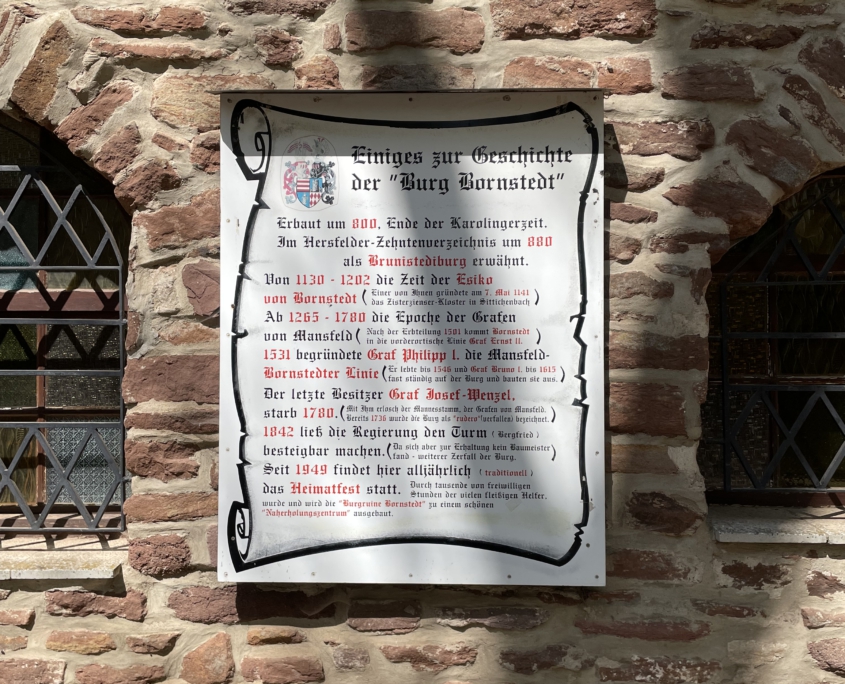 Einiges zur Geschichte
der "Burg Bornstedt"
Erbaut um 800, Ende der Karolingerzeit.
Im Hersfelder-Zehntenverzeichnis um 880
als Brunistediburg erwähnt.
Von 1130 - 1202 die Zeit der Esiko
von Bornstedt ( Einer von Ihnen gründete am 7. Mai 1141
das Zisterzienser-Kloster in Sittichenbach )
Ab 1265 - 1780 die Epoche der Grafen
von Mansfeld ( Nach der Erbteilung 1501 kommt Bornstedt
in die vorderortische Linie Graf Ernst II. )
1531 begründete Graf Philipp I. die Mansfeld-
Bornstedter Linie ( Er lebte bis 1546 und Graf Bruno I. bis 1615
fast ständig auf der Burg und bauten sie aus. )
Der letzte Besitzer Graf Josef-Wenzel,
starb 1780. ( Mit Ihm erlosch der Mannesstamm, der Grafen von Mansfeld.
Bereits 1736 wurde die Burg als "rudera"(verfallen) bezeichnet. )
1842 ließ die Regierung den Turm ( Bergfried )
besteigbar machen. ( Da sich aber zur Erhaltung kein Baumeister
fand - weiterer Zerfall der Burg. )
Seit 1949 findet hier alljährlich ( traditionell )
das Heimatfest statt. Durch tausende von freiwilligen
Stunden der vielen fleißigen Helfer,
wurde und wird die "Burgruine Bornstedt" zu einem schönen
"Naherholungszentrum" ausgebaut.